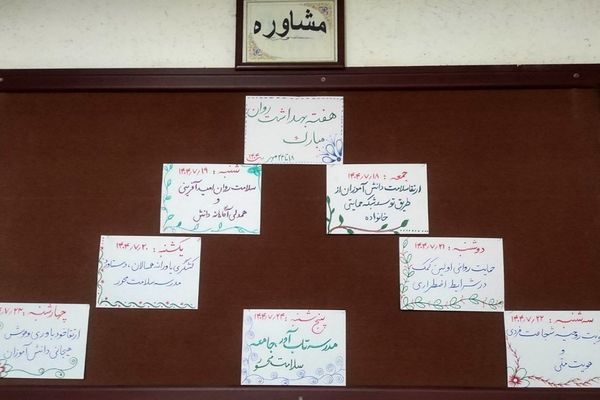 مشاوره
هفته بهداشت روان
مبارک
۱۸ تا ۲۴ مهر ۱۴۰۴
جمعه: ۱۴۰۴/۷/۱۸
ارتقا سلامت دانش آموزان از
طریق توسعه شبکه حمایتی
خانواده
شنبه: ۱۴۰۴/۷/۱۹
سلامت روان امید آفرینی
و
همدلی آگاهانه دانش
یکشنبه: ۱۴۰۴/۷/۲۰
کنشگری یاورانه همسالان، دستاورد
مدرسه سلامت محور
دوشنبه: ۱۴۰۴/۷/۲۱
حمایت روانی اولین کمک
در شرایط اضطراری
سه شنبه: ۱۴۰۴/۷/۲۲
روحیه شجاعت فردی
و
هویت ملی
چهارشنبه: ۱۴۰۴/۷/۲۳
ارتقا خودباوری و هوش
هیجانی دانش آموزان
پنج شنبه: ۱۴۰۴/۷/۲۴
مدرسه تاب آور، جامعه
سلامت محور